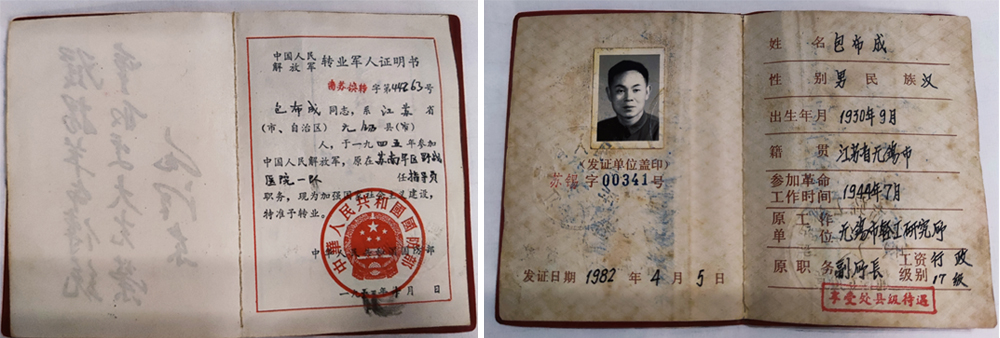 中国人民
解放军 转业军人证明书
字第44263号
包布成同志，系江苏省
（市、自治区）无锡县（市）
人，于一九四五年参加
中国人民解放军，原在苏南军区野战
医院一队 任指导员
职务，现为加强国家社会主义建设，
特准予转业。
中华人民共和国国防部
中華人民共和國國防部
月 日
（发证单位盖印）
苏锡字00341号
发证日期 1982 年 4 月 5 日
姓 名 包布成
性 别 男 民 族 汉
出生年月 1930年9月
籍 贯 江苏省无锡市
参加革命
工作时间 1944年7月
原 工 作
单 位 无锡市轻工研究所
原 职 务 副所長 工资 行政
级别 17级
享受处县级待遇